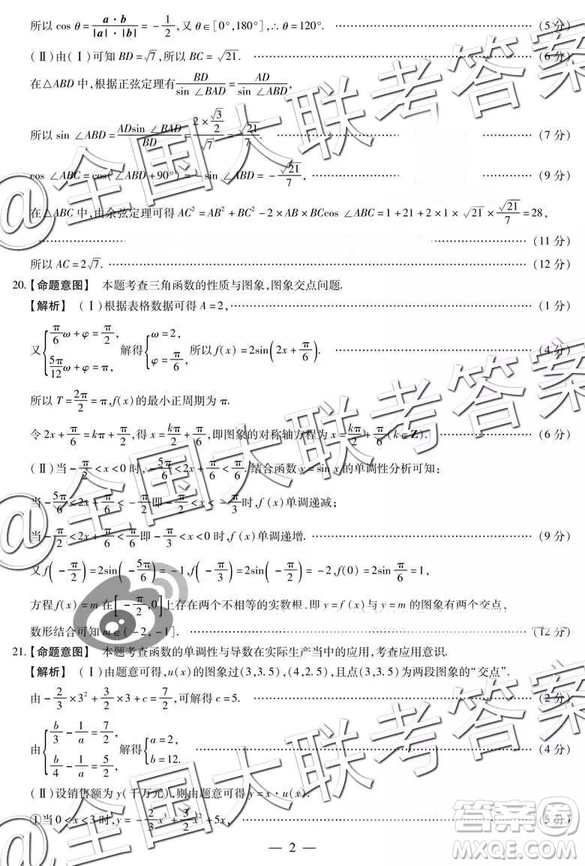 所以 cos θ = a·b / |a|·|b| = -1/2, 又 θ∈[0°,180°], ∴ θ=120°. (5 分)
(Ⅱ)由(Ⅰ)可知 BD=√7, 所以 BC=√21. (6 分)
在△ABD 中,根据正弦定理有 BD/sin ∠BAD = AD/sin ∠ABD,
所以 sin ∠ABD = ADsin ∠BAD/BD = (2×√3/2)/√7 = √21/7, (7 分)
cos ∠ABC = cos(∠ABD+90°) = -sin ∠ABD = -√21/7, (9 分)
在△ABC 中,由余弦定理可得 AC²=AB²+BC²-2×AB×BCcos ∠ABC=1+21+2×1×√21×√21/7=28,
(11 分)
所以 AC=2√7. (12 分)
20.【命题意图】 本题考查三角函数的性质与图象,图象交点问题.
【解析】 (Ⅰ)根据表格数据可得 A=2, (1 分)
又{π/6 ω+φ=π/2, 5π/12 ω+φ=π, 解得{ω=2, φ=π/6, 所以 f(x)=2sin(2x+π/6). (4 分)
所以 T=2π/2=π, f(x)的最小正周期为 π.
令 2x+π/6=kπ+π/2, 得 x=kπ/2+π/6, 即图象的对称轴方程为 x=kπ/2+π/6(k∈Z). (6 分)
(Ⅱ)当 -π/2<x<0 时, -5π/6<2x+π/6<π/6, 结合函数 y=sin x 的单调性分析可知:
当 -5π/6<2x+π/6<-π/2 即 -π/2<x<-π/3 时, f(x)单调递减;
当 -π/2<2x+π/6<π/6 即 -π/3<x<0 时, f(x)单调递增. (9 分)
又 f(-π/2)=2sin(-5π/6)=-1, f(-π/3)=2sin(-π/2)=-2, f(0)=2sin π/6=1,
方程 f(x)=m 在[-π/2,0]上存在两个不相等的实数根,即 y=f(x)与 y=m 的图象有两个交点,
数形结合可知 m∈(-2,-1]. (12 分)
21.【命题意图】 本题考查函数的单调性与导数在实际生产当中的应用,考查应用意识.
【解析】 (Ⅰ)由题意可得, u(x)的图象过(3,3.5),(4,2.5),且点(3,3.5)为两段图象的“交点”.
由 -2/3×3²+3/2×3+c=7/2, 可解得 c=5. (2 分)
由{b/3-1/a=7/2, b/4-1/a=5/2, 解得{a=2, b=12. (4 分)
(Ⅱ)设销售额为 y(千万元),则由题意可得 y=x·u(x).
①当 0<x<3 时, y=-2/3x³+3/2x²+5x, (5 分)
— 2 —
@全国大联考答案
@全国大联考答案
@全国大联考答案
答案圈
MXQE.COM